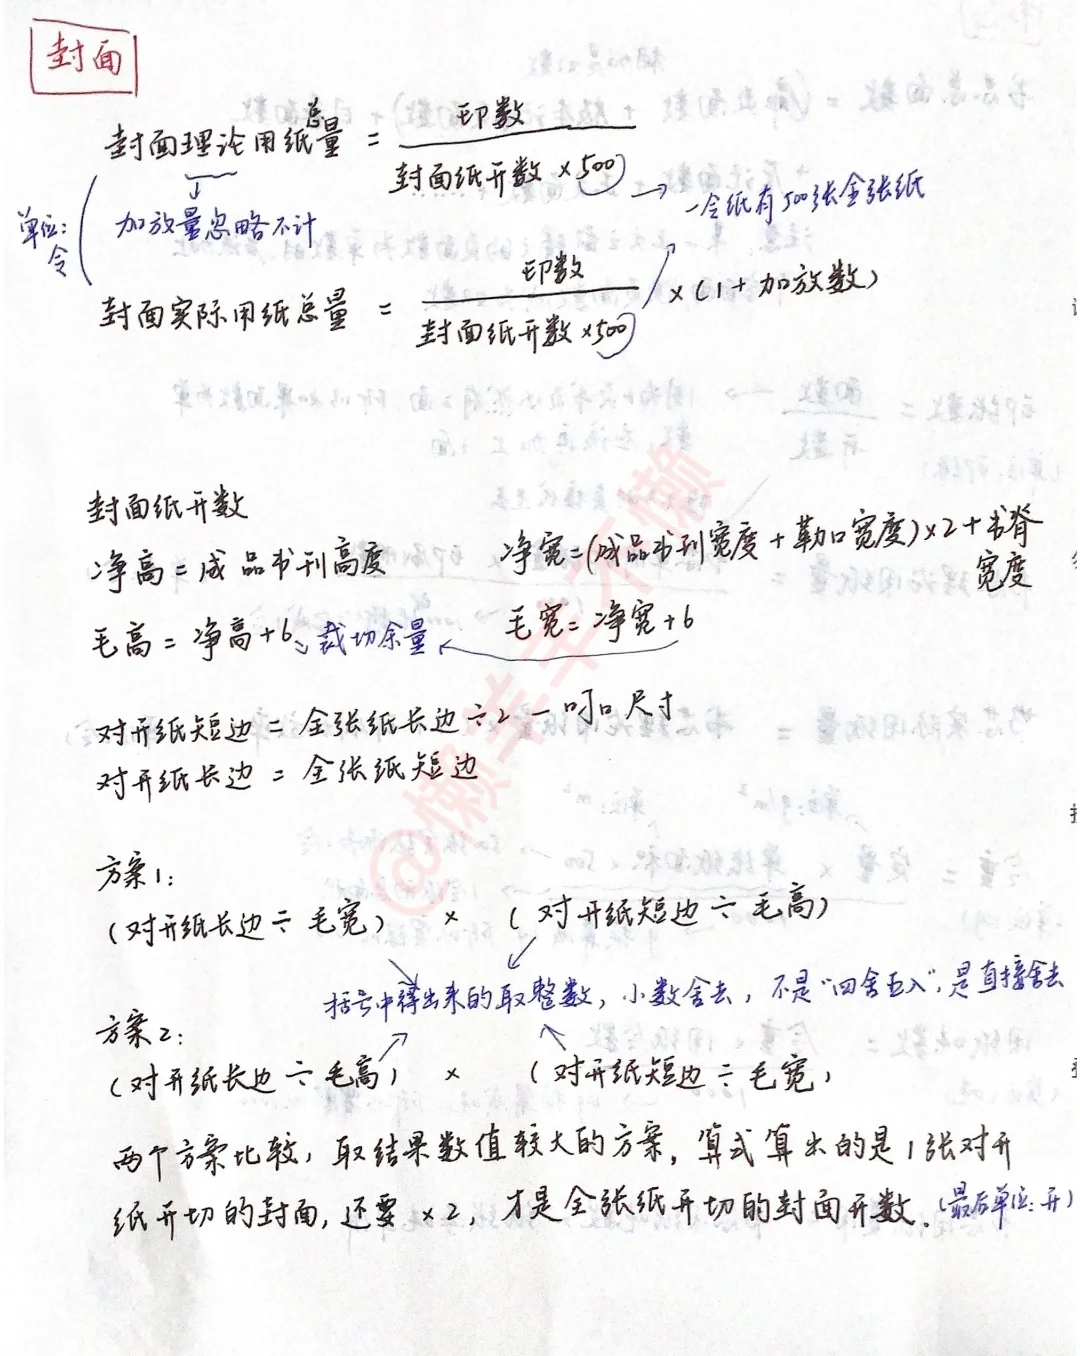 封面
封面理论用纸总量 = 印数 / 封面纸开数×500
一令纸有500张全张纸
单位：令
加放量忽略不计
封面实际用纸总量 = 印数 / 封面纸开数×500 ×(1+加放数)
封面纸开数
净高=成品书刊高度
净宽=(成品书刊宽度+勒口宽度)×2+书脊宽度
毛高=净高+6
裁切余量
毛宽=净宽+6
对开纸短边=全张纸长边÷2-叼口尺寸
对开纸长边=全张纸短边
方案1：
(对开纸长边÷毛宽) × (对开纸短边÷毛高)
括号中得出来的取整数，小数舍去，不是"四舍五入"，是直接舍去
方案2：
(对开纸长边÷毛高) × (对开纸短边÷毛宽)
两个方案比较，取结果数值较大的方案，算式算出的是1张对开
纸开切的封面，还要×2，才是全张纸开切的封面开数。(最后单位：开)
@懒羊羊不懒